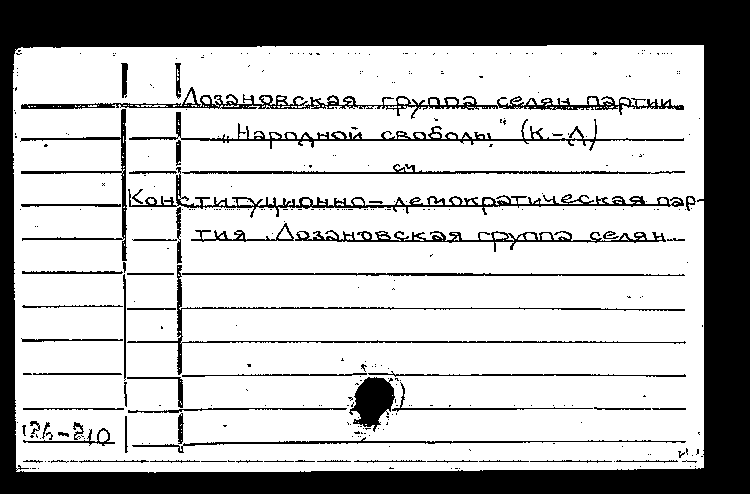 Лозановская группа селян партии
„Народной свободы" (К.-Д)
см.
Конституционно-демократическая пар-
тия. Лозановская группа селян.
126-210